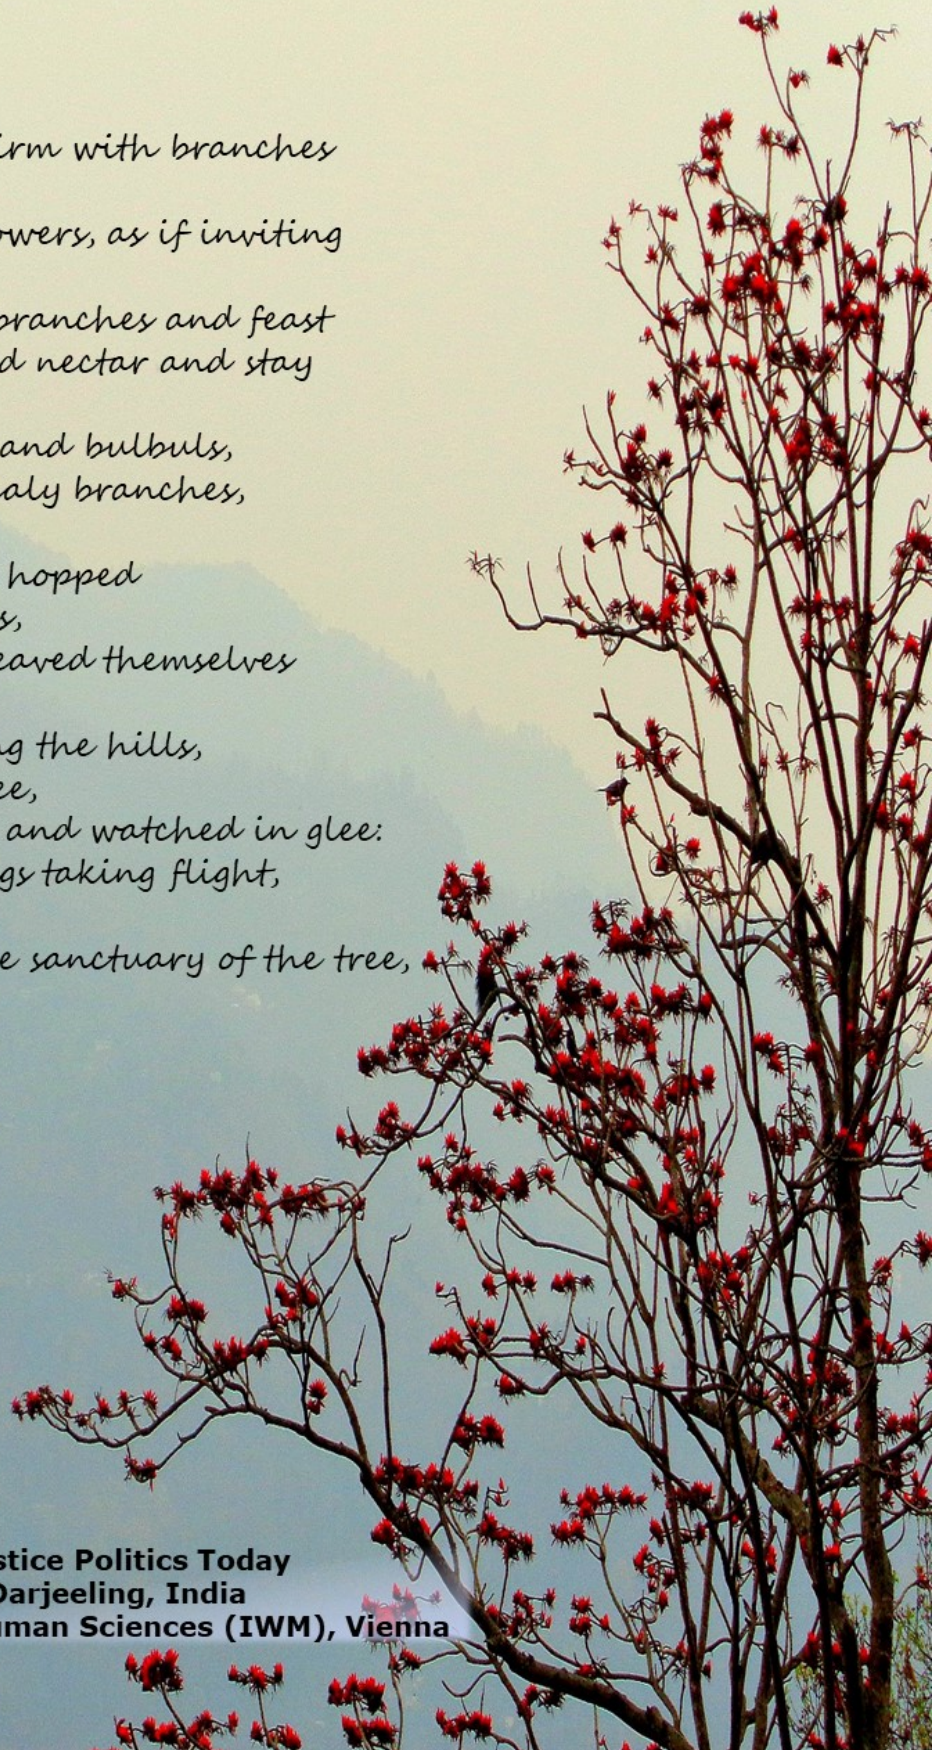 irm with branches
owers, as if inviting
branches and feast
d nectar and stay
and bulbuls,
aly branches,
hopped
s,
eaved themselves
ng the hills,
ee,
and watched in glee:
gs taking flight,
e sanctuary of the tree,
stice Politics Today
Darjeeling, India
uman Sciences (IWM), Vienna